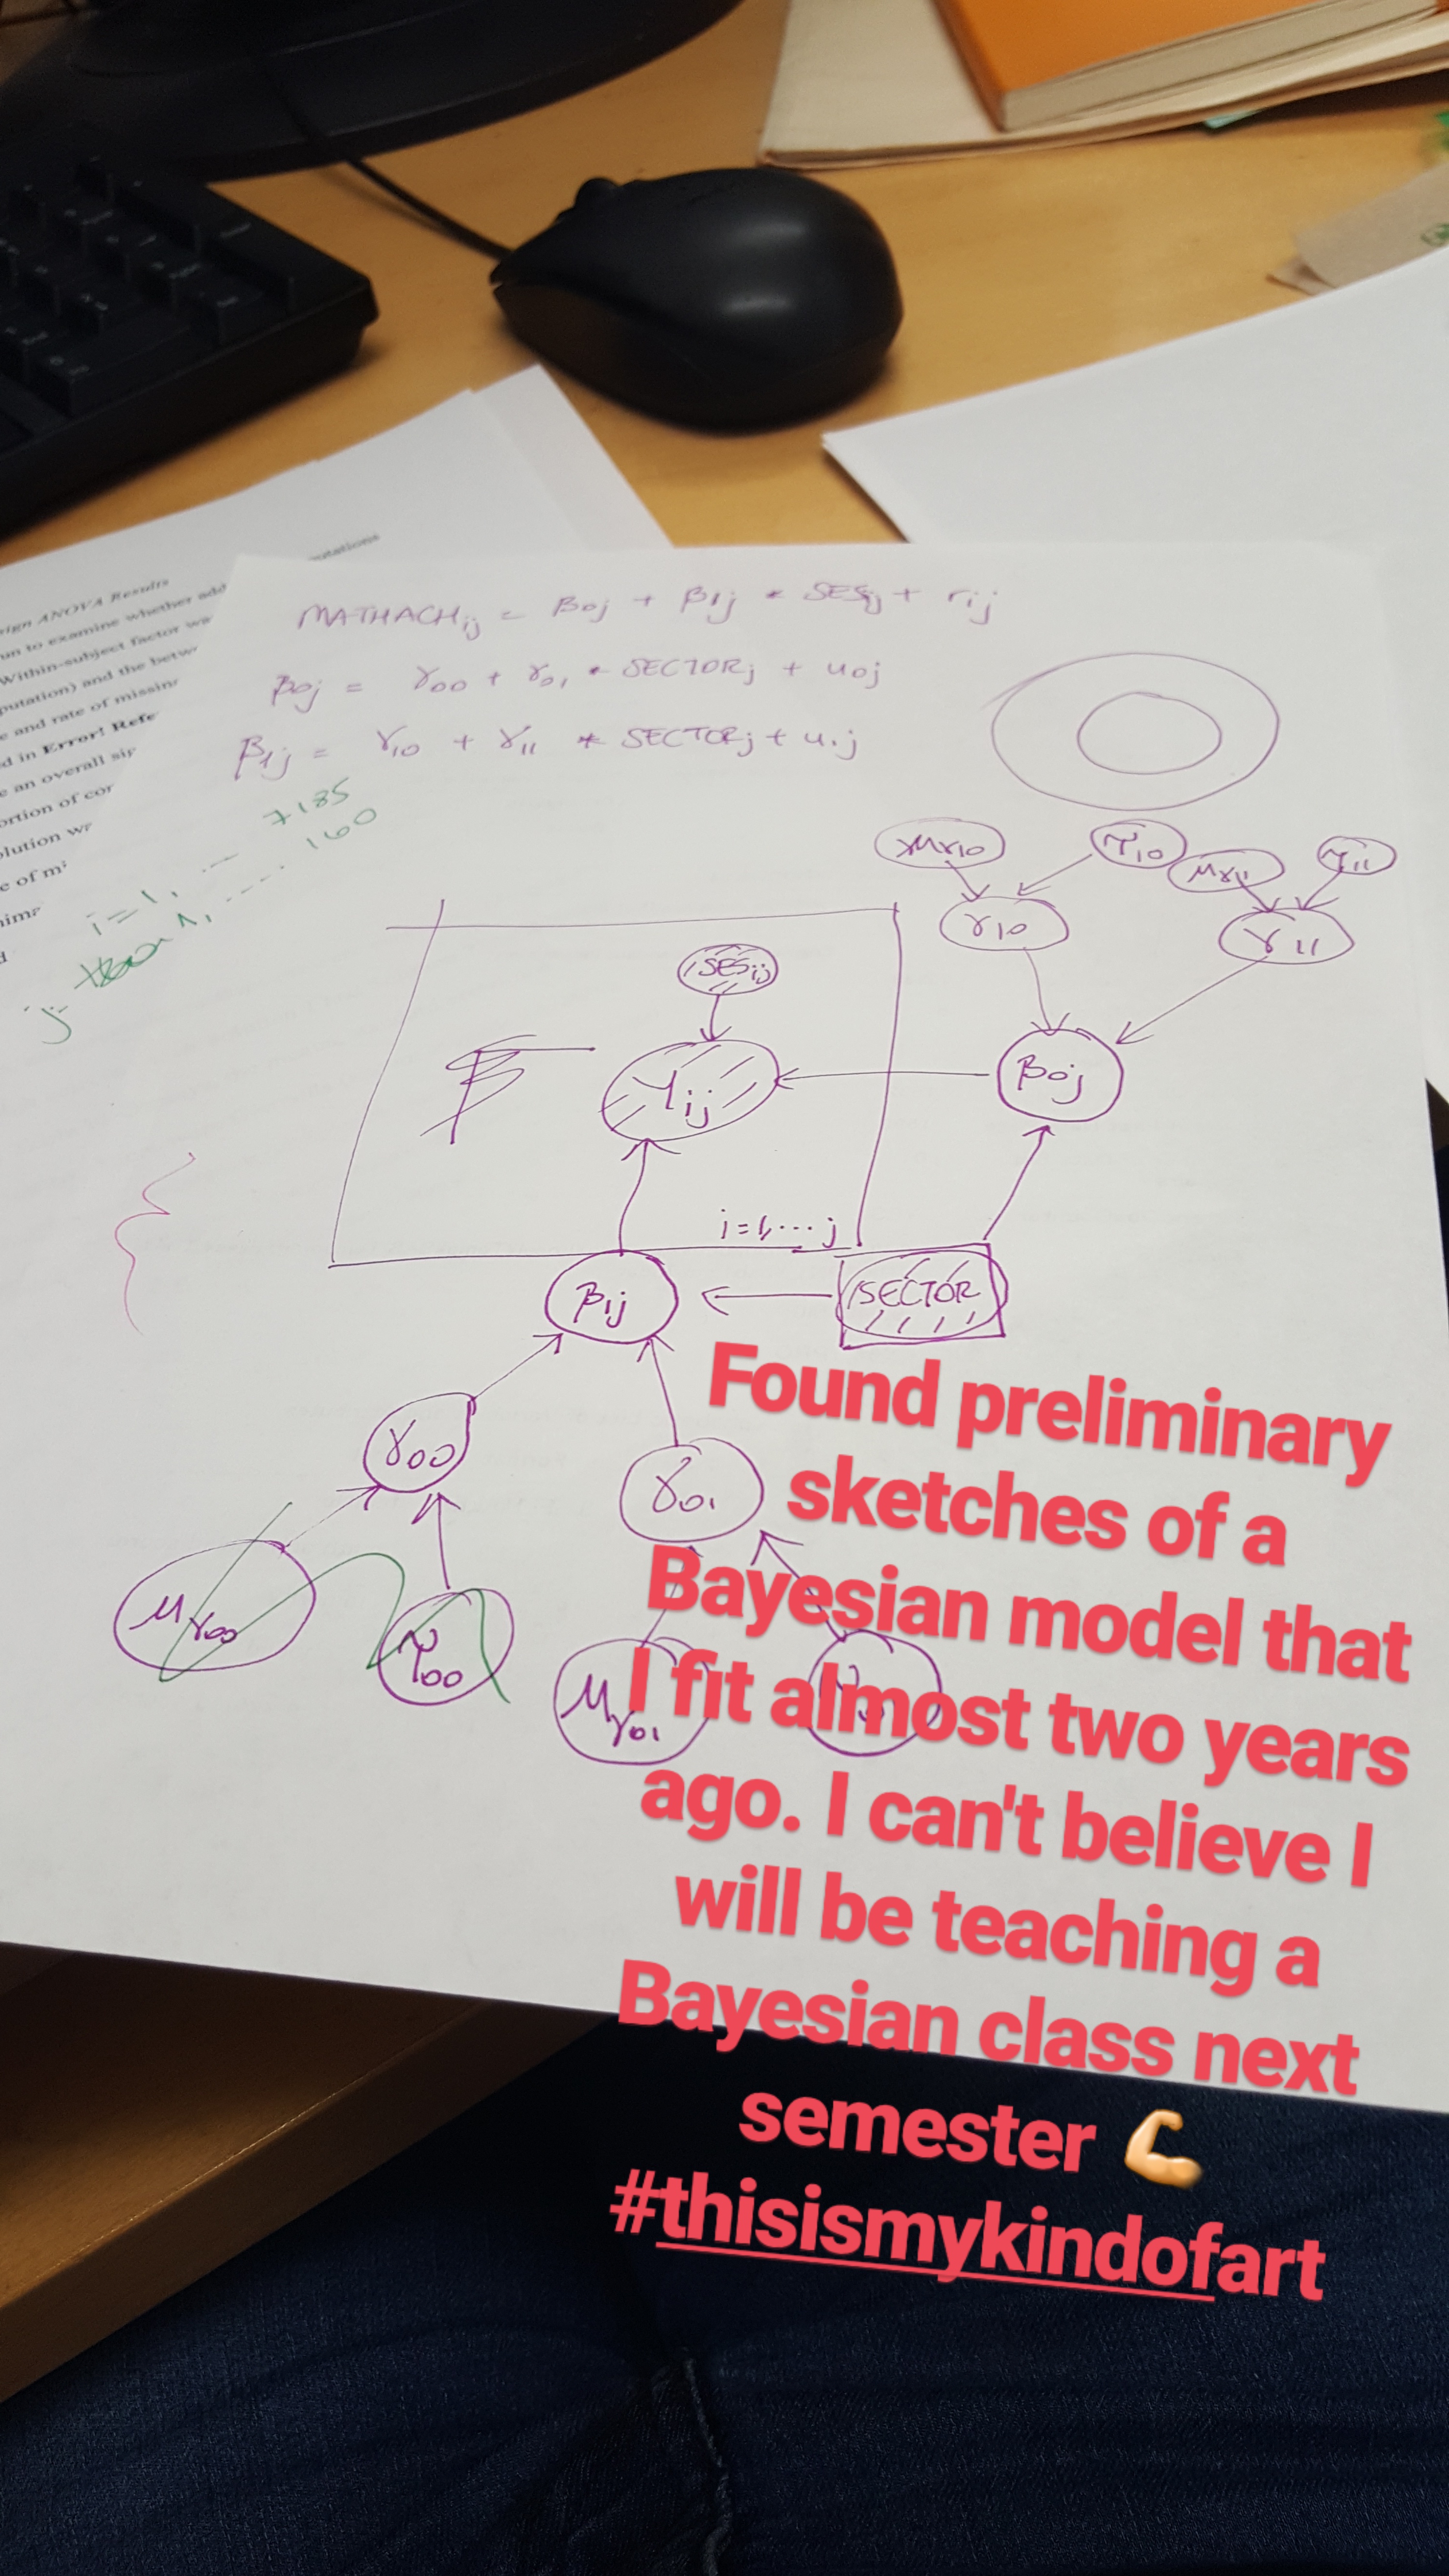 ign ANOVA Results
un to examine whether add
Within-subject factor wa
putation) and the betw
e and rate of missin
d in Error! Refe
e an overall si
ortion of cor
olution w
e of m
utations
MATHACHij = β0j + β1j * SESij + rij
β0j = γ00 + γ01 * SECTORj + u0j
β1j = γ10 + γ11 * SECTORj + u1j
i = 1, ... 7185
j = 1, .... 160
μγ10
τ10
μγ11
τ11
γ10
γ11
SESij
Yij
β0j
i=1,...j
β1j
SECTOR
γ00
γ01
μγ00
τ00
μγ01
Found preliminary
sketches of a
Bayesian model that
I fit almost two years
ago. I can't believe I
will be teaching a
Bayesian class next
semester 💪
#thisismykindofart